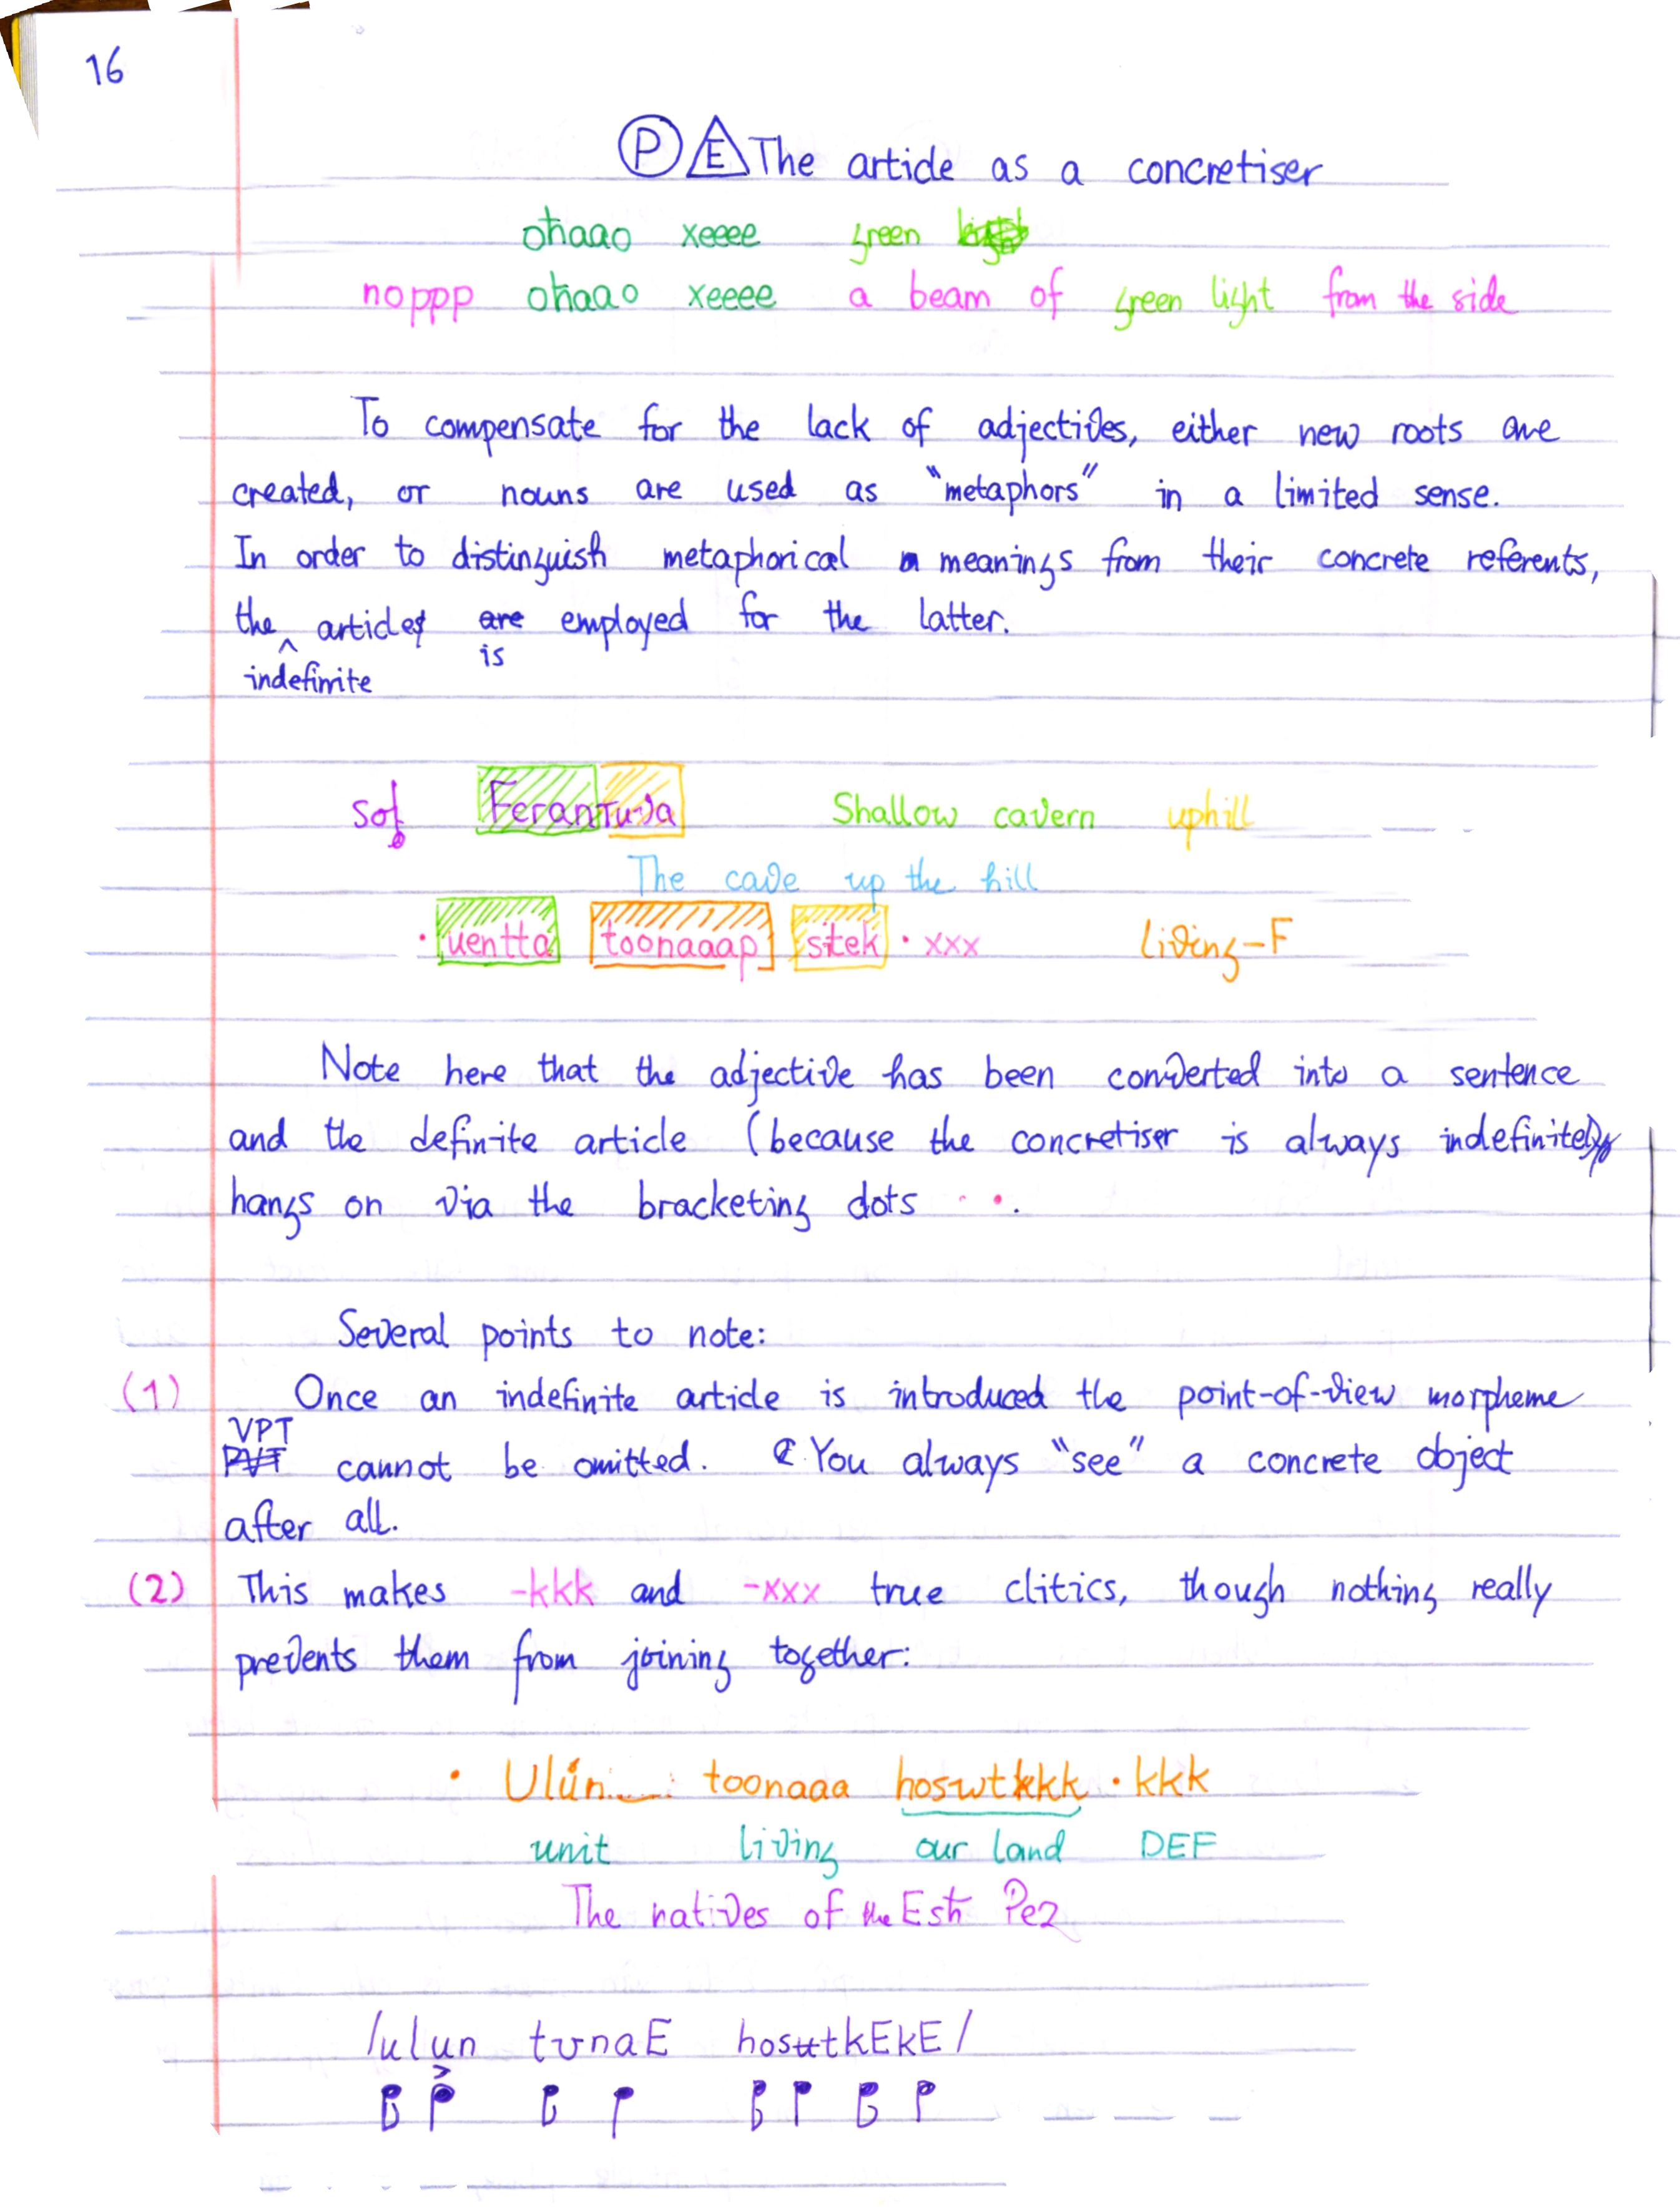 16
P E The article as a concretiser
oħaao xeeee green
noppp oħaao xeeee a beam of green light from the side
To compensate for the lack of adjectives, either new roots are
created, or nouns are used as “metaphors” in a limited sense.
In order to distinguish metaphorical meanings from their concrete referents,
the ^ article is employed for the latter.
indefinite
Shallow cavern uphill
The cave up the hill
· uentta toonaaap sitek · xxx living-F
Note here that the adjective has been converted into a sentence
and the definite article (because the concretiser is always indefinite)
hangs on via the bracketing dots · ·.
Several points to note:
(1) Once an indefinite article is introduced the point-of-view morpheme
VPT
cannot be omitted. You always “see” a concrete object
after all.
(2) This makes -kkk and -xxx true clitics, though nothing really
prevents them from joining together:
· Ulún toonaaa hoswtkkk · kkk
unit living our land DEF
The natives of the Esħ Pez
/ulun tʊnaE hosʉtkEkE/